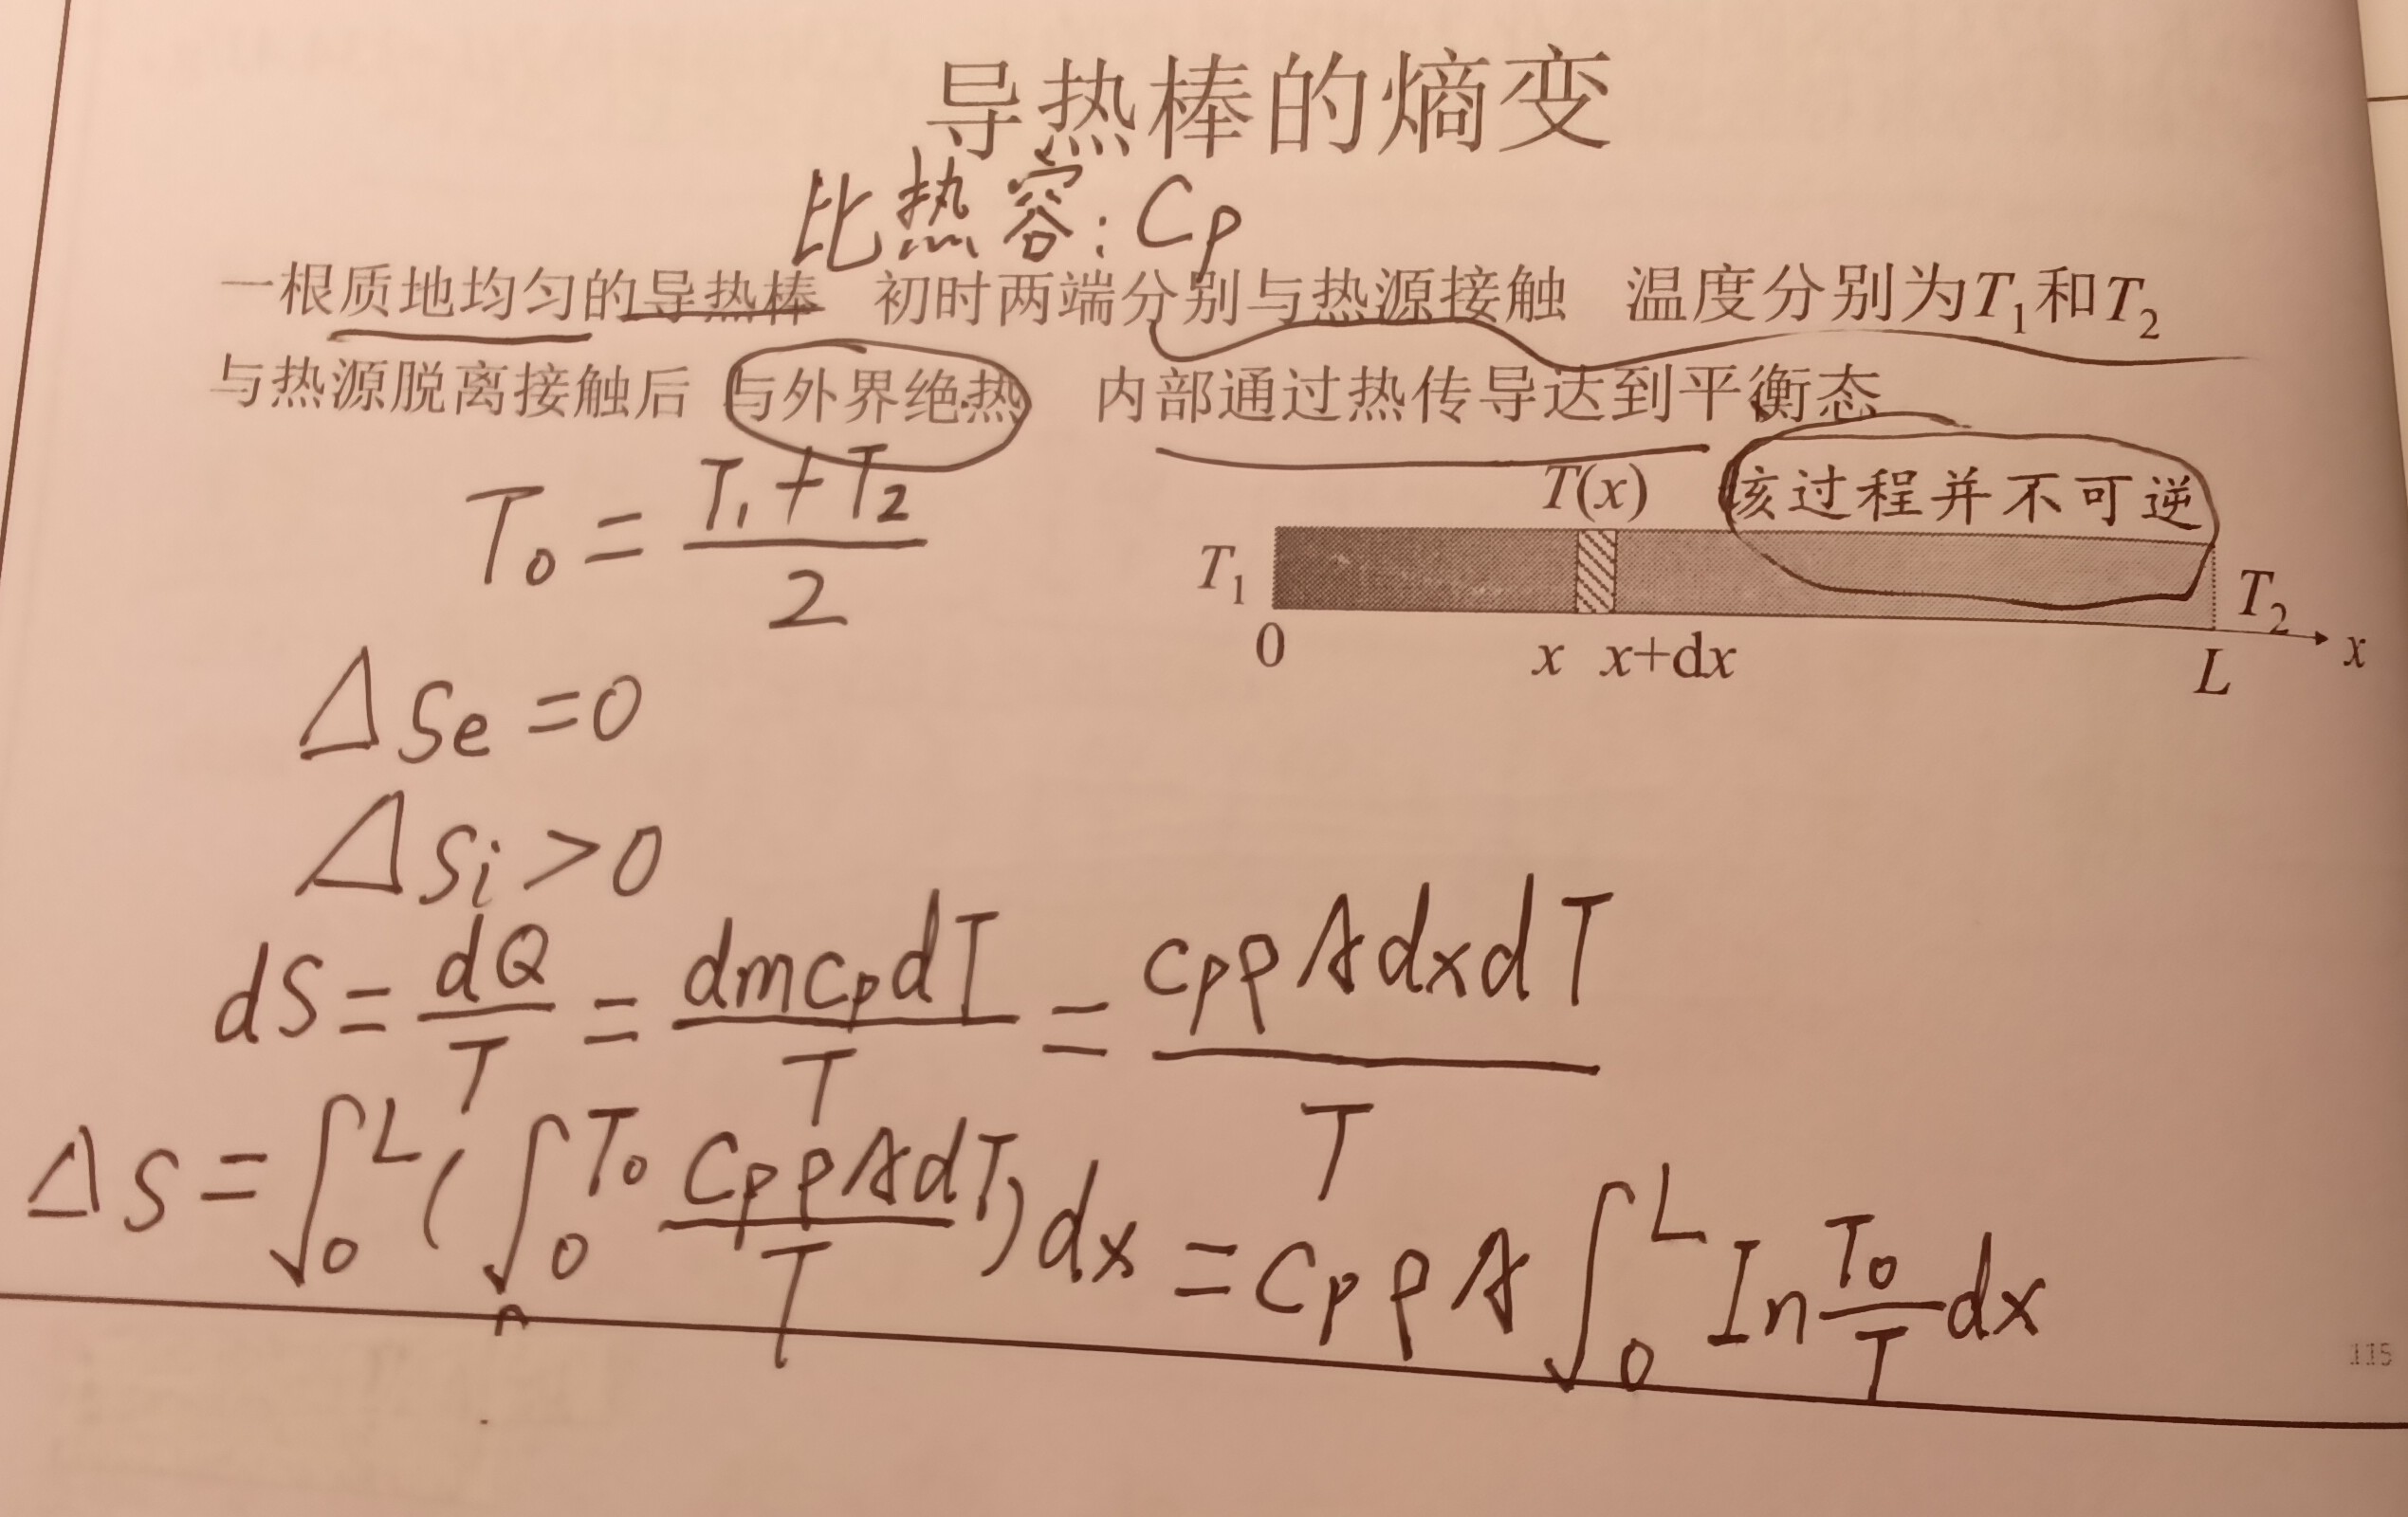 导热棒的熵变
比热容：Cp
一根质地均匀的导热棒 初时两端分别与热源接触 温度分别为T₁和T₂
与热源脱离接触后 与外界绝热 内部通过热传导达到平衡态
T₀ = (T₁+T₂)/2
T(x) 该过程并不可逆
T₁ T₂
0 x x+dx L x
ΔSe = 0
ΔSi > 0
dS = dQ/T = dmcₚdT/T = cₚρAdxdT/T
ΔS = ∫₀ᴸ (∫₀^T₀ CₚρAdT/T) dx = CₚρA ∫₀ᴸ In T₀/T dx
115